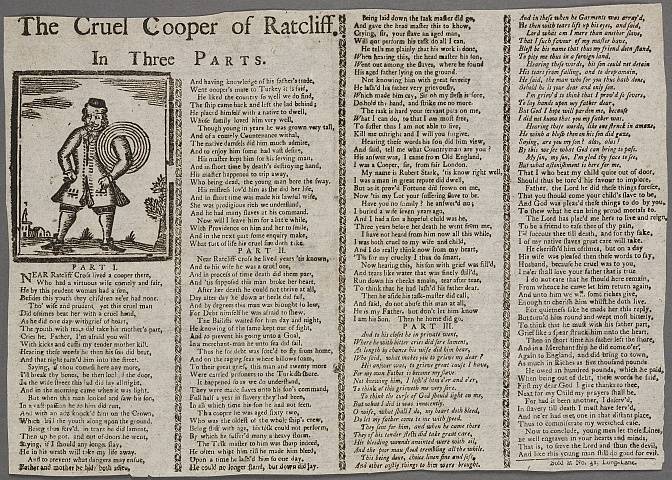 The Cruel Cooper of Ratcliff.
In Three PARTS.
PART I.
NEAR Ratcliff Cross lived a cooper there,
Who had a virtuous wife comely and fair,
He by this prudent woman had a son,
Besides this youth they children never had none.
Tho' wife and prudent, yet this cruel man
Did oftimes beat her with a cruel hand,
As he did one day without of heart,
The youth with tears did take his mother's part,
Cries he, Father, I'm afraid you will
With kicks and cuffs my tender mother kill.
Hearing these words he then his son did beat,
And that night turn'd him into the street.
Saying, if thou comest here any more,
I'll break thy bones, he then lock'd the door,
And in the morning came where it was light.
But when this man looked and saw his son,
In a vast passion he to him did run,
And with an adz knock'd him on the Crown,
Which laid the youth along upon the ground.
Then up he got, and out of door he went,
Saying, if I should any longer stay,
He in his wrath will take my life away.
And to prevent what dangers may ensue,
Father and mother he bids both adieu,
And having knowledge of his father's trade,
Went cooper's mate to Turkey it is said,
He liked the country so well we do find,
The ship came back and left the lad behind;
He placed himself with a native to dwell,
Whose family loved him very well,
Though young in years he was grown very tall,
And of a comely Countenance withal,
The native dandels did him much admire,
And to enjoy him some had vast desire,
His master kept him for his serving man,
And in short time by death's destroying hand,
His master happened to trip away,
Who being dead, the young man bore the sway.
His mistress lov'd him as she did her life,
And in short time was made his lawful wife,
She was prodigious rich we understand,
And he had many slaves at his command.
Now will I leave him for a little while,
With Providence on him and her to smile,
And in the next part some enquiry make,
What sort of life his cruel sire doth take.
PART II.
Near Ratcliff Cross he lived years 'tis known,
And to his wife he was a cruel one,
And in process of time death did them part,
And 'tis supposed this man broke her heart.
After her death he could not thrive at all,
Day after day he down at heels did fall,
And by degrees this man was brought so low,
For Debt himself he was afraid to shew.
The Bailiffs waited for him day and night,
He knowing of the same kept out of sight,
And to prevent his going unto a Goal,
In a merchant-man he unto sea did sail.
Thus he for debt was forc'd to fly from home,
And on the raging seas where billows foam,
To their great grief, this man and twenty more
Were carried prisoners to the Turkish shore.
It happened so as we do understand,
They were made slaves unto his son's command,
Full half a year in slavery they had been,
In all which time his son he had not seen.
The cooper he was aged sixty two,
Who was the oldest of the whole ship's crew,
Being stiff with age, his task could not perform,
By which he suffer'd many a heavy storm.
The Task master to him was sharp indeed,
He often whipt him till he made him bleed,
Upon a time he lash'd him so one day,
He could no longer stand, but down did lay.
Being laid down the task master did go,
And gave the head master this to know,
Crying, sir, your slave an aged man,
Will not perform his task do all I can.
He tells me plainly that his work is done,
When hearing this, the head master his son,
Went out among the slaves, where he found
His aged father lying on the ground.
Not knowing him with great severity
He lash'd his father very grievously,
Which made him cry, Sir oh my stress is sore,
Behold thy hand, and strike me no more.
The task is hard your servant puts on me,
What I can do, to that I am most free,
To suffer thus I am not able to live,
Kill me outright and I will you forgive.
Hearing their words his son did him view,
And said, tell me what Countryman are you?
His answer was, I came from Old England,
I was a Cooper, sir, from fair London.
My name is Robert Stark, 'tis know right well,
I was a man in great repute did dwell,
But as it prov'd Fortune did frown on me,
Now 'tis my Lot your suffering slave to be.
Have you no family? he answer'd no;
I buried a wife seven years ago,
And I had a son a hopeful child was he,
Three years before her death he went from me,
I have not heard from him now all this while,
I was both cruel to my wife and child,
And I do really think now from my heart,
'Tis for my cruelty I thus do smart.
Now hearing this, his son with grief was fill'd,
And tears like water that was finely distil'd,
Run down his cheeks amain, tear after tear,
To think that he had lash'd his father dear.
Then he asides the task-master did call,
And said, do not abuse this man at all,
He is my Father, but don't let him know
I am his Son. Then he homed did go,
PART III.
And to his closet he in private went,
Where he with bitter cries did sore lament,
At length by chance his wife did him hear,
Who said, what made you to grieve my dear?
His answer was, to grieve great cause I have,
My own poor Father is become my slave
Not knowing him, I lash'd him o'er and o'er,
To think of this grieveth me very sore.
To think the curse of God should light on me,
But what I did it was innocency.
O wife, what shall I do, my heart doth bleed,
Do let my father come to us with speed.
They sent for him, and when he came there
They of his tender flesh did take great care,
His bleeding wounds anointed were with oil,
And the poor man stood trembling all the while.
This being done, choice linen fine and soft,
And other costly things to him were brought.
And in these when he Garments was array'd,
He then with tears lift up his eyes, and said,
Lord what am I more than another slave,
That I such favour of my master have,
Blest be his name that this my friend dien stand,
To pity me thus in a foreign land,
Hearing these words, his son could not detain
His tears from falling, and to weep amain,
He said, the man who for you thus hath done,
Behold he is your dear and only son.
I'm griev'd to think that I prov'd so severe,
To lay hands upon my father dear,
But God I hope will pardon me, because
I did not know that you my father was.
Hearing their words, like one struck in amaze,
He with a blush then on his son did gaze,
Saying, are you my son? alas, alas!
By this we see what God can bring to pass.
My son, my son, I'm glad thy face to see,
But what astonishment is here for me,
That I who beat my child quite out of door,
Should thus be tore'd his favour to implore,
Father, the Lord he did these things foresee,
That you should come your child's slave to be,
And God was pleas'd these things to do by you,
To shew what he can bring proud mortals to.
The Lord has plac'd me here to live and reign,
To be a friend to ease thee of thy pain,
I'll succour thee till death, and for thy sake,
I of my native slaves great care will take.
He cherish'd him oftimes, but on a day
His wife was pleased then these words to say,
Husband, because he cruel was to you,
I ne'er shall love your father that is true
I do agree that he should here remain
From whence he came let him return again,
And unto him we will some riches give,
Enough to cherish him whilst he doth live.
For quietness sake he made her this reply,
But turn'd him round and wept most bitterly,
To think that he must with his father part,
Grief like a spear struck him unto the heart.
Then in short time his father left the shore,
And in a Merchant ship he did come o'er,
Again to England, and did bring to town,
As much in Riches as five thousand pounds
He owed an hundred pounds, which he paid,
When being out of debt, these words he said,
First my dear God I give thanks to thee,
Next for my Child my prayers shall be,
For had it been another, I declare,
In slavery till death I must have serv'd,
And ne'er had met one in that distant place,
Thus to commiserate my wretched case.
Now to conclude, young men let these Lines,
be well engraven in your hearts and minds,
That is, to serve the Lord and shun the evil,
And like this young man still do good for evil.
Sold at No. 42, Long-Lane.